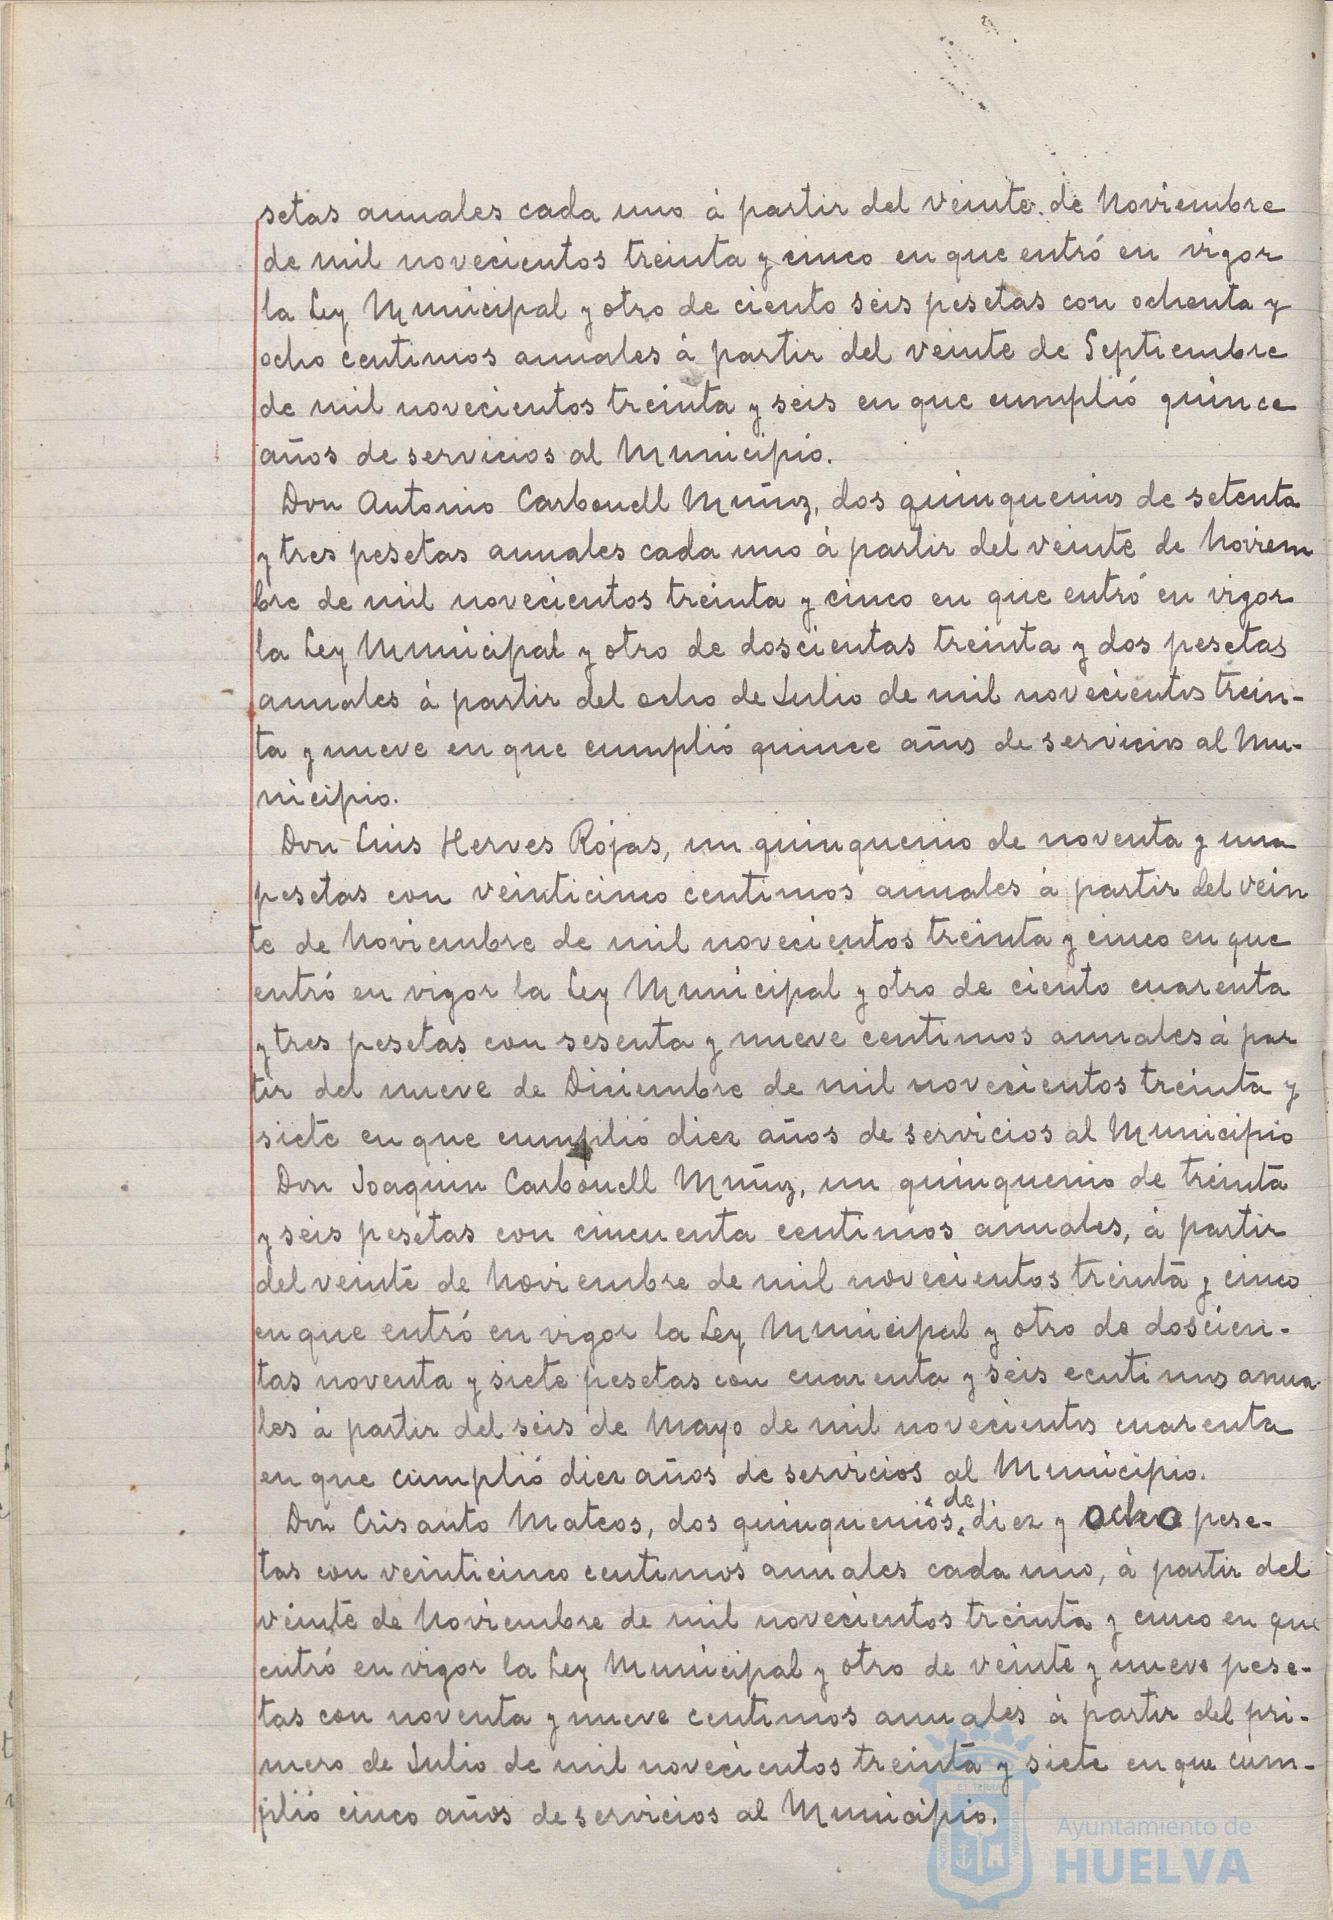 setas anuales cada uno á partir del veinte de Noviembre
de mil novecientos treinta y cinco en que entró en vigor
la Ley Municipal y otro de ciento seis pesetas con ochenta y
ocho centimos anuales á partir del veinte de Septiembre
de mil novecientos treinta y seis en que cumplió quince
años de servicios al Municipio.
Don Antonio Carbonell Muñoz, dos quinquenios de setenta
y tres pesetas anuales cada uno á partir del veinte de Noviem
bre de mil novecientos treinta y cinco en que entró en vigor
la Ley Municipal y otro de doscientas treinta y dos pesetas
anuales á partir del ocho de Julio de mil novecientos trein-
ta y nueve en que cumplió quince años de servicios al Mu-
nicipio.
Don Luis Herves Rojas, un quinquenio de noventa y una
pesetas con veinticinco centimos anuales á partir del vein
te de Noviembre de mil novecientos treinta y cinco en que
entró en vigor la Ley Municipal y otro de ciento cuarenta
y tres pesetas con sesenta y nueve centimos anuales á par
tir del nueve de Diciembre de mil novecientos treinta y
siete en que cumplió diez años de servicios al Municipio
Don Joaquin Carbonell Muñoz, un quinquenio de treinta
y seis pesetas con cincuenta centimos anuales, á partir
del veinte de Noviembre de mil novecientos treinta y cinco
en que entró en vigor la Ley Municipal y otro de doscien-
tas noventa y siete pesetas con cuarenta y seis centimos anua
les á partir del seis de Mayo de mil novecientos cuarenta
en que cumplió diez años de servicios al Municipio.
Don Crisanto Mateos, dos quinquenios de diez y ocho pese-
tas con veinticinco centimos anuales cada uno, á partir del
veinte de Noviembre de mil novecientos treinta y cinco en que
entró en vigor la Ley Municipal y otro de veinte y nueve pese-
tas con noventa y nueve centimos anuales á partir del pri-
mero de Julio de mil novecientos treinta y siete en que cum-
plió cinco años de servicios al Municipio.
Ayuntamiento de
HUELVA